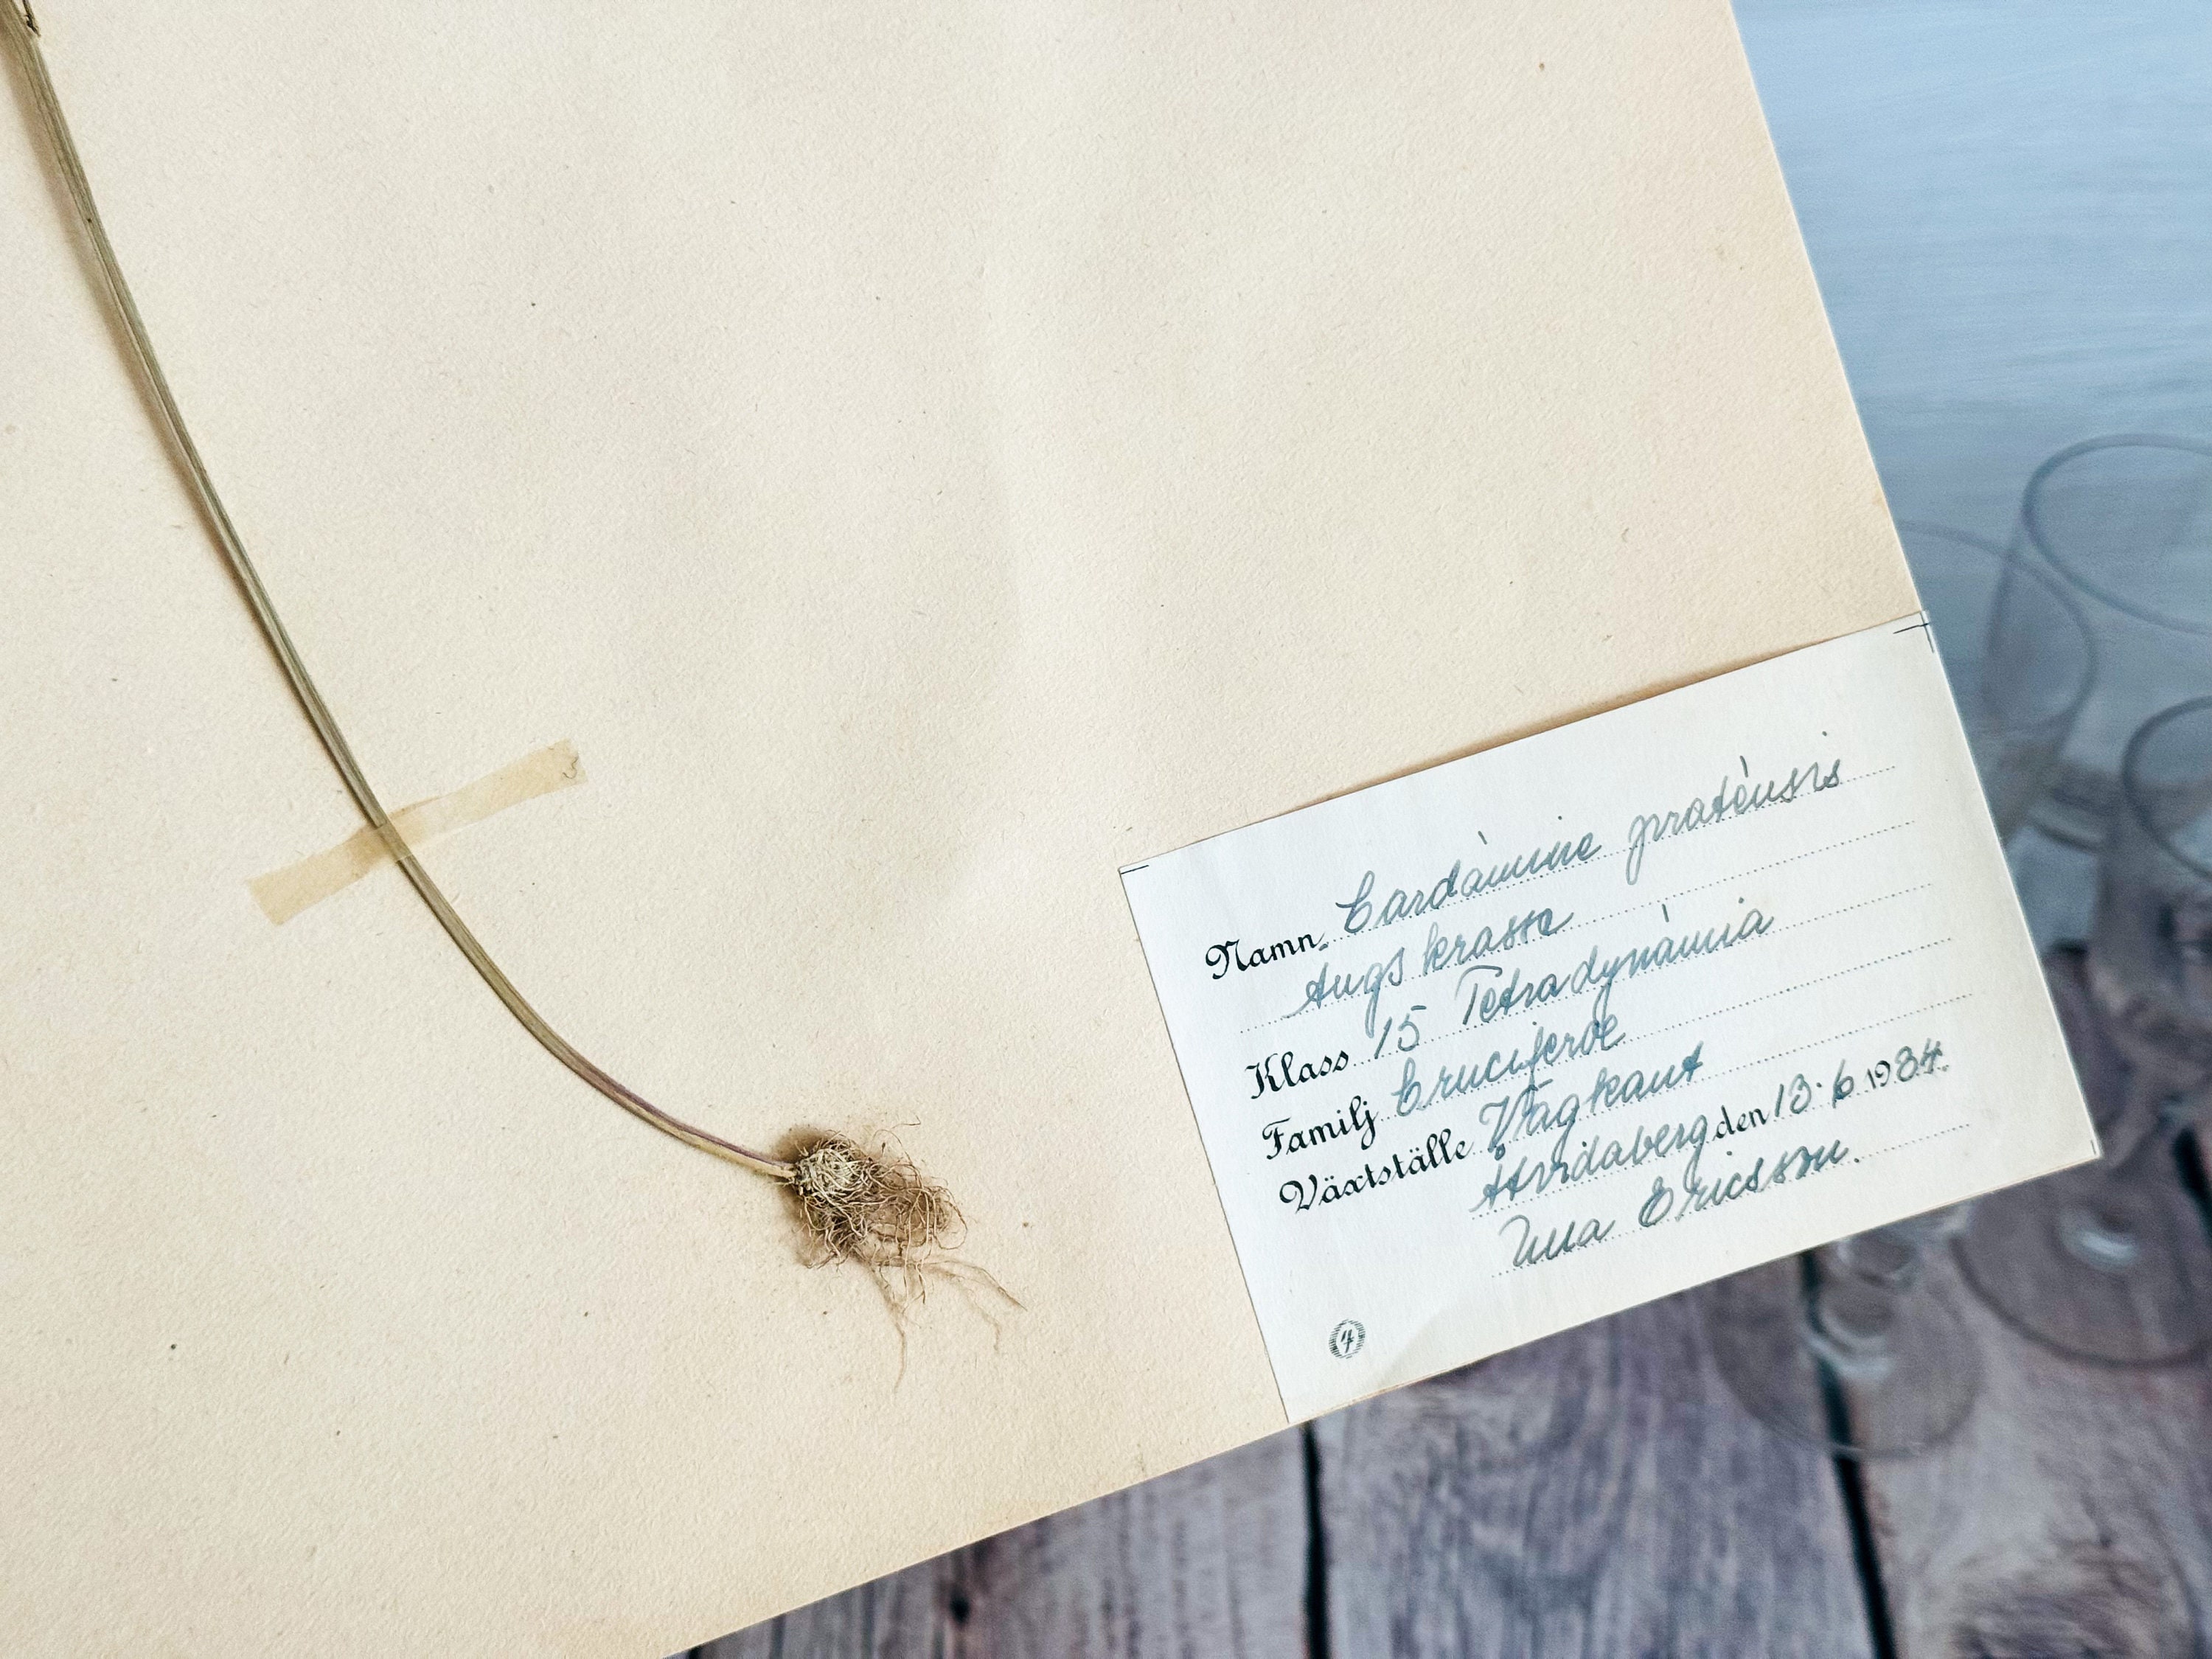 Namn. Cardámine praténsis
Ängskrasse
Klass 15 Tetradynámia
Familj Cruciferæ
Växtställe Vägkant
den 13.6 1934.
Ericsson.
4